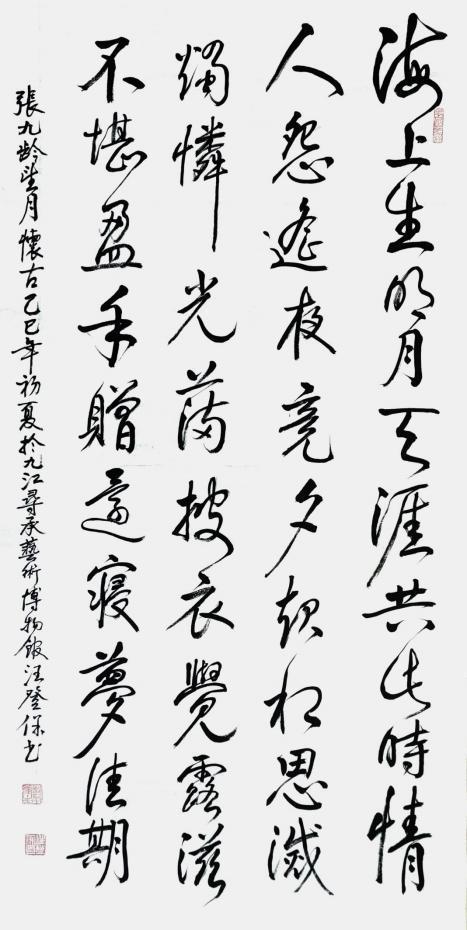 海上生明月天涯共此時情
人怨遙夜竟夕起相思滅
燭憐光滿披衣覺露滋
不堪盈手贈還寢夢佳期
張九龄望月懷古乙巳年初夏於九江尋承藝術博物館汪登保书